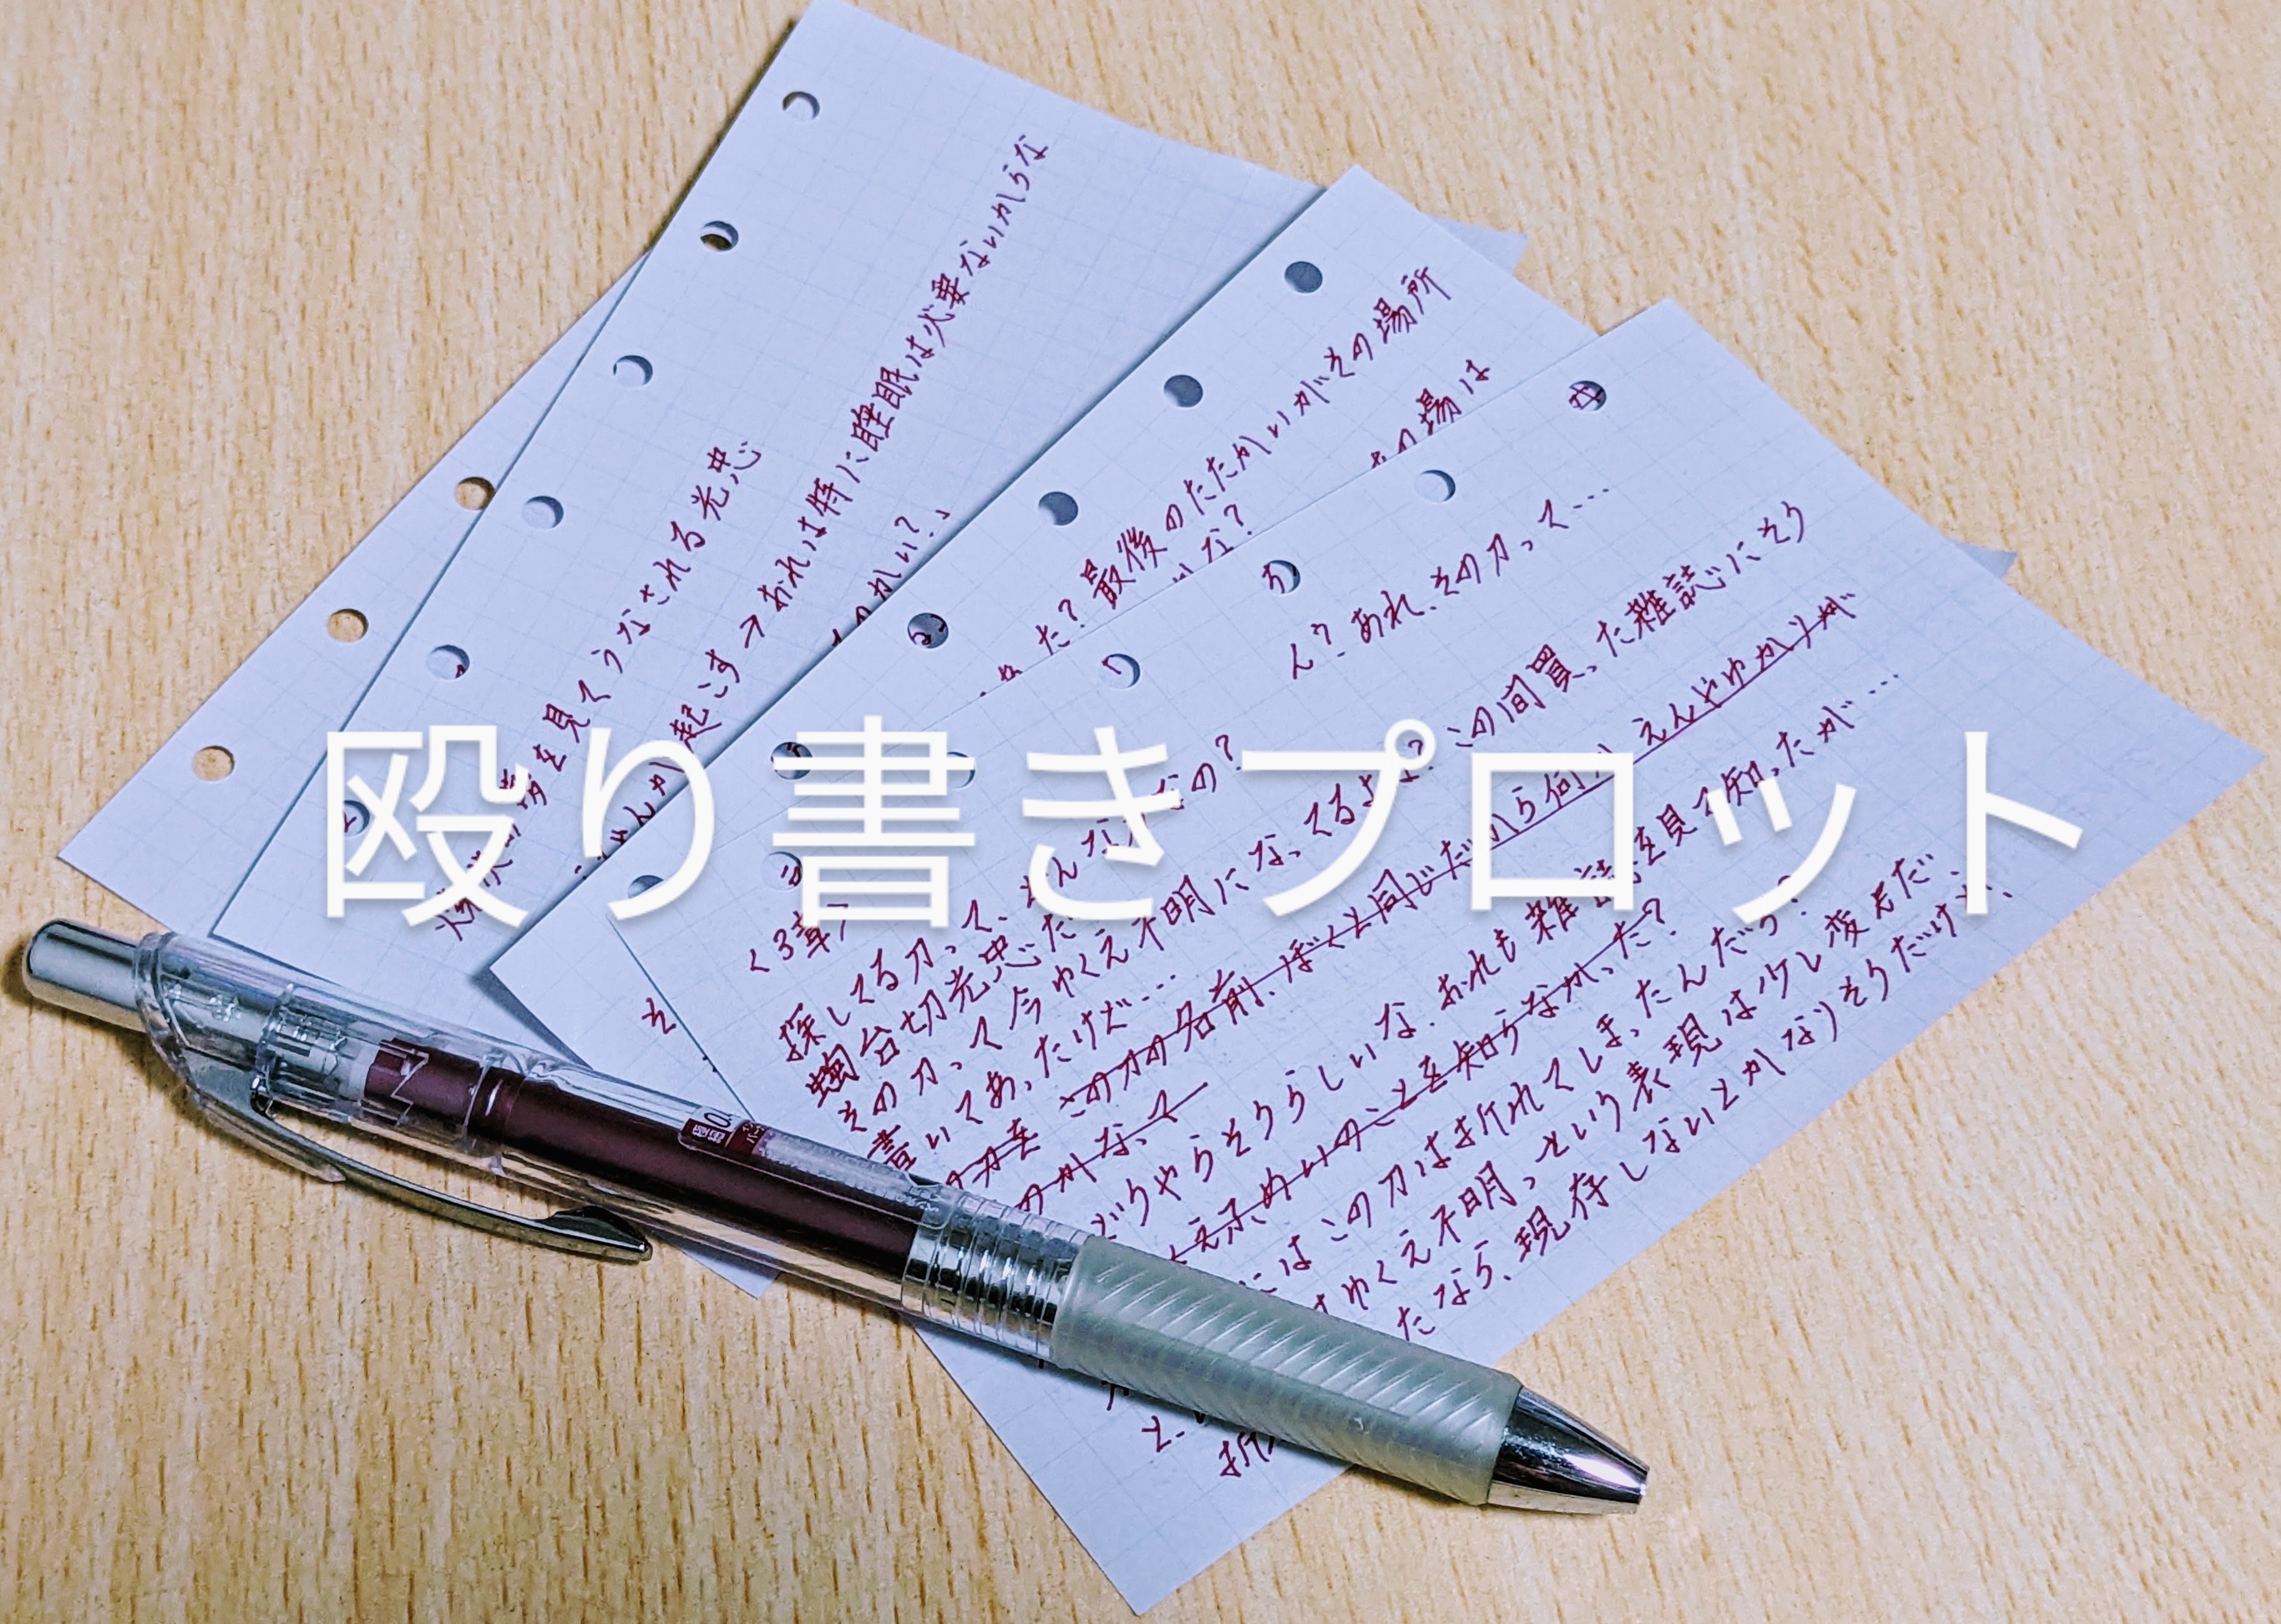 殴り書きプロット
夢を見てうなされる光忠
起こす→おれは特に睡眠は必要ないからな
のかい?」
た?最後のたたかいがその場所
な?
あの場は
<3章>
探してる刀って、どんな刀なの?
ん?あれ、その刀って…
燭台切光忠だ
その刀って今ゆくえ不明になってるよな?この間買った雑誌にそう
書いてあったけど…
の刀を この刀の名前、ぼくと同じだから何か えんやゆかりが
のかなって
どうやらそうらしいな。おれも雑誌を見て知ったが…
ゆくえふめいのことを知らなかった?
にはこの刀は折れてしまったんだろ?
ゆくえ不明っという表現は少し変だな、
たなら、現存しないとかなりそうだけど、